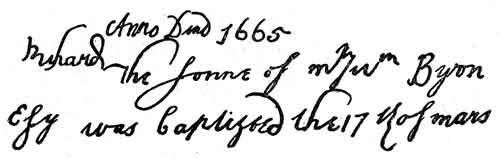 Anno 1665
Richard the sonne of mr Wm Byon
Esq was baptized the 17 th of mars